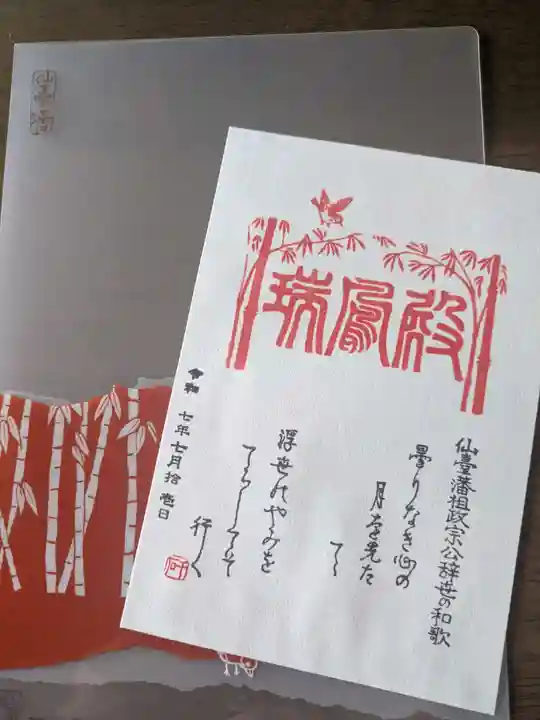 瑞鳳殿
仙臺藩祖政宗公辞世の和歌
曇りなき心の
月を先た
てゝ
浮世のやみを
てらしてそ
行く
令和
七年七月拾壱日